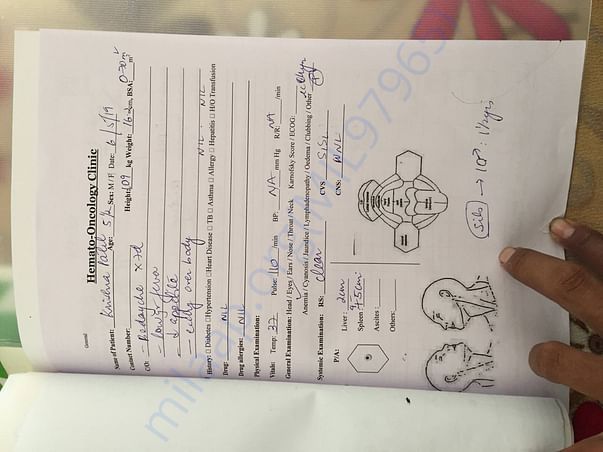 General
Hemato-Oncology Clinic
Name of Patient: Krishna Patel Age: 5 Sex: M/F Date: 6/5/19
Contact Number: Height: 109 kg Weight: 16.2 cm, BSA: 0.70 m²
C/O: - Bodyache x 7d
- low gr. fever
- ↓ appetite
- over body
History □ Diabetes □ Hypertension □ Heart Disease □ TB □ Asthma □ Allergy □ Hepatitis □ H/O Transfusion
NIL. NIL
Drug: NIL
Drug allergies: NIL
Physical Examination:
Vitals: Temp: 37 Pulse: 110 /min BP: NA mm Hg R/R: NA /min
General Examination: Head / Eyes / Ears / Nose / Throat / Neck Karnofsky Score / ECOG:
Anemia / Cyanosis / Jaundice / Lymphadenopathy / Oedema / Clubbing / Other
Systemic Examination: RS: clear CVS S1S2
CNS: WNL
P/A:
Liver: 2cm
Spleen 4-5cm
Ascites:
Others:
Sibs → 1 ♂ : 1½ yrs
milaap.org